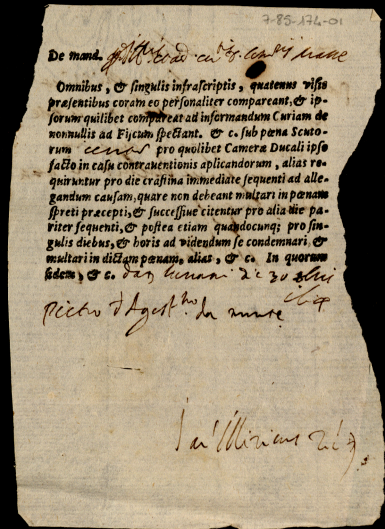 7-85-174-01
De mand.
Omnibus, & singulis infrascriptis, quatenus visis
præsentibus coram eo personaliter compareant, & ip-
sorum quilibet compareat ad informandum Curiam de
nonnullis ad Fiscum spectant. & c. sub pœna Scuto-
rum pro quolibet Cameræ Ducali ipso
facto in casu contrauentionis aplicandorum, alias re-
quiruntur pro die crastina immediate sequenti ad alle-
gandum causam, quare non debeant multari in pœnam
spreti præcepti, & successiue citentur pro alia die pa-
riter sequenti, & postea etiam quandocunq; pro sin-
gulis diebus, & horis ad videndum se condemnari, &
multari in dictam pœnam, alias, & c. In quorum
fidem, & c. 30
Pietro d Agost.no da